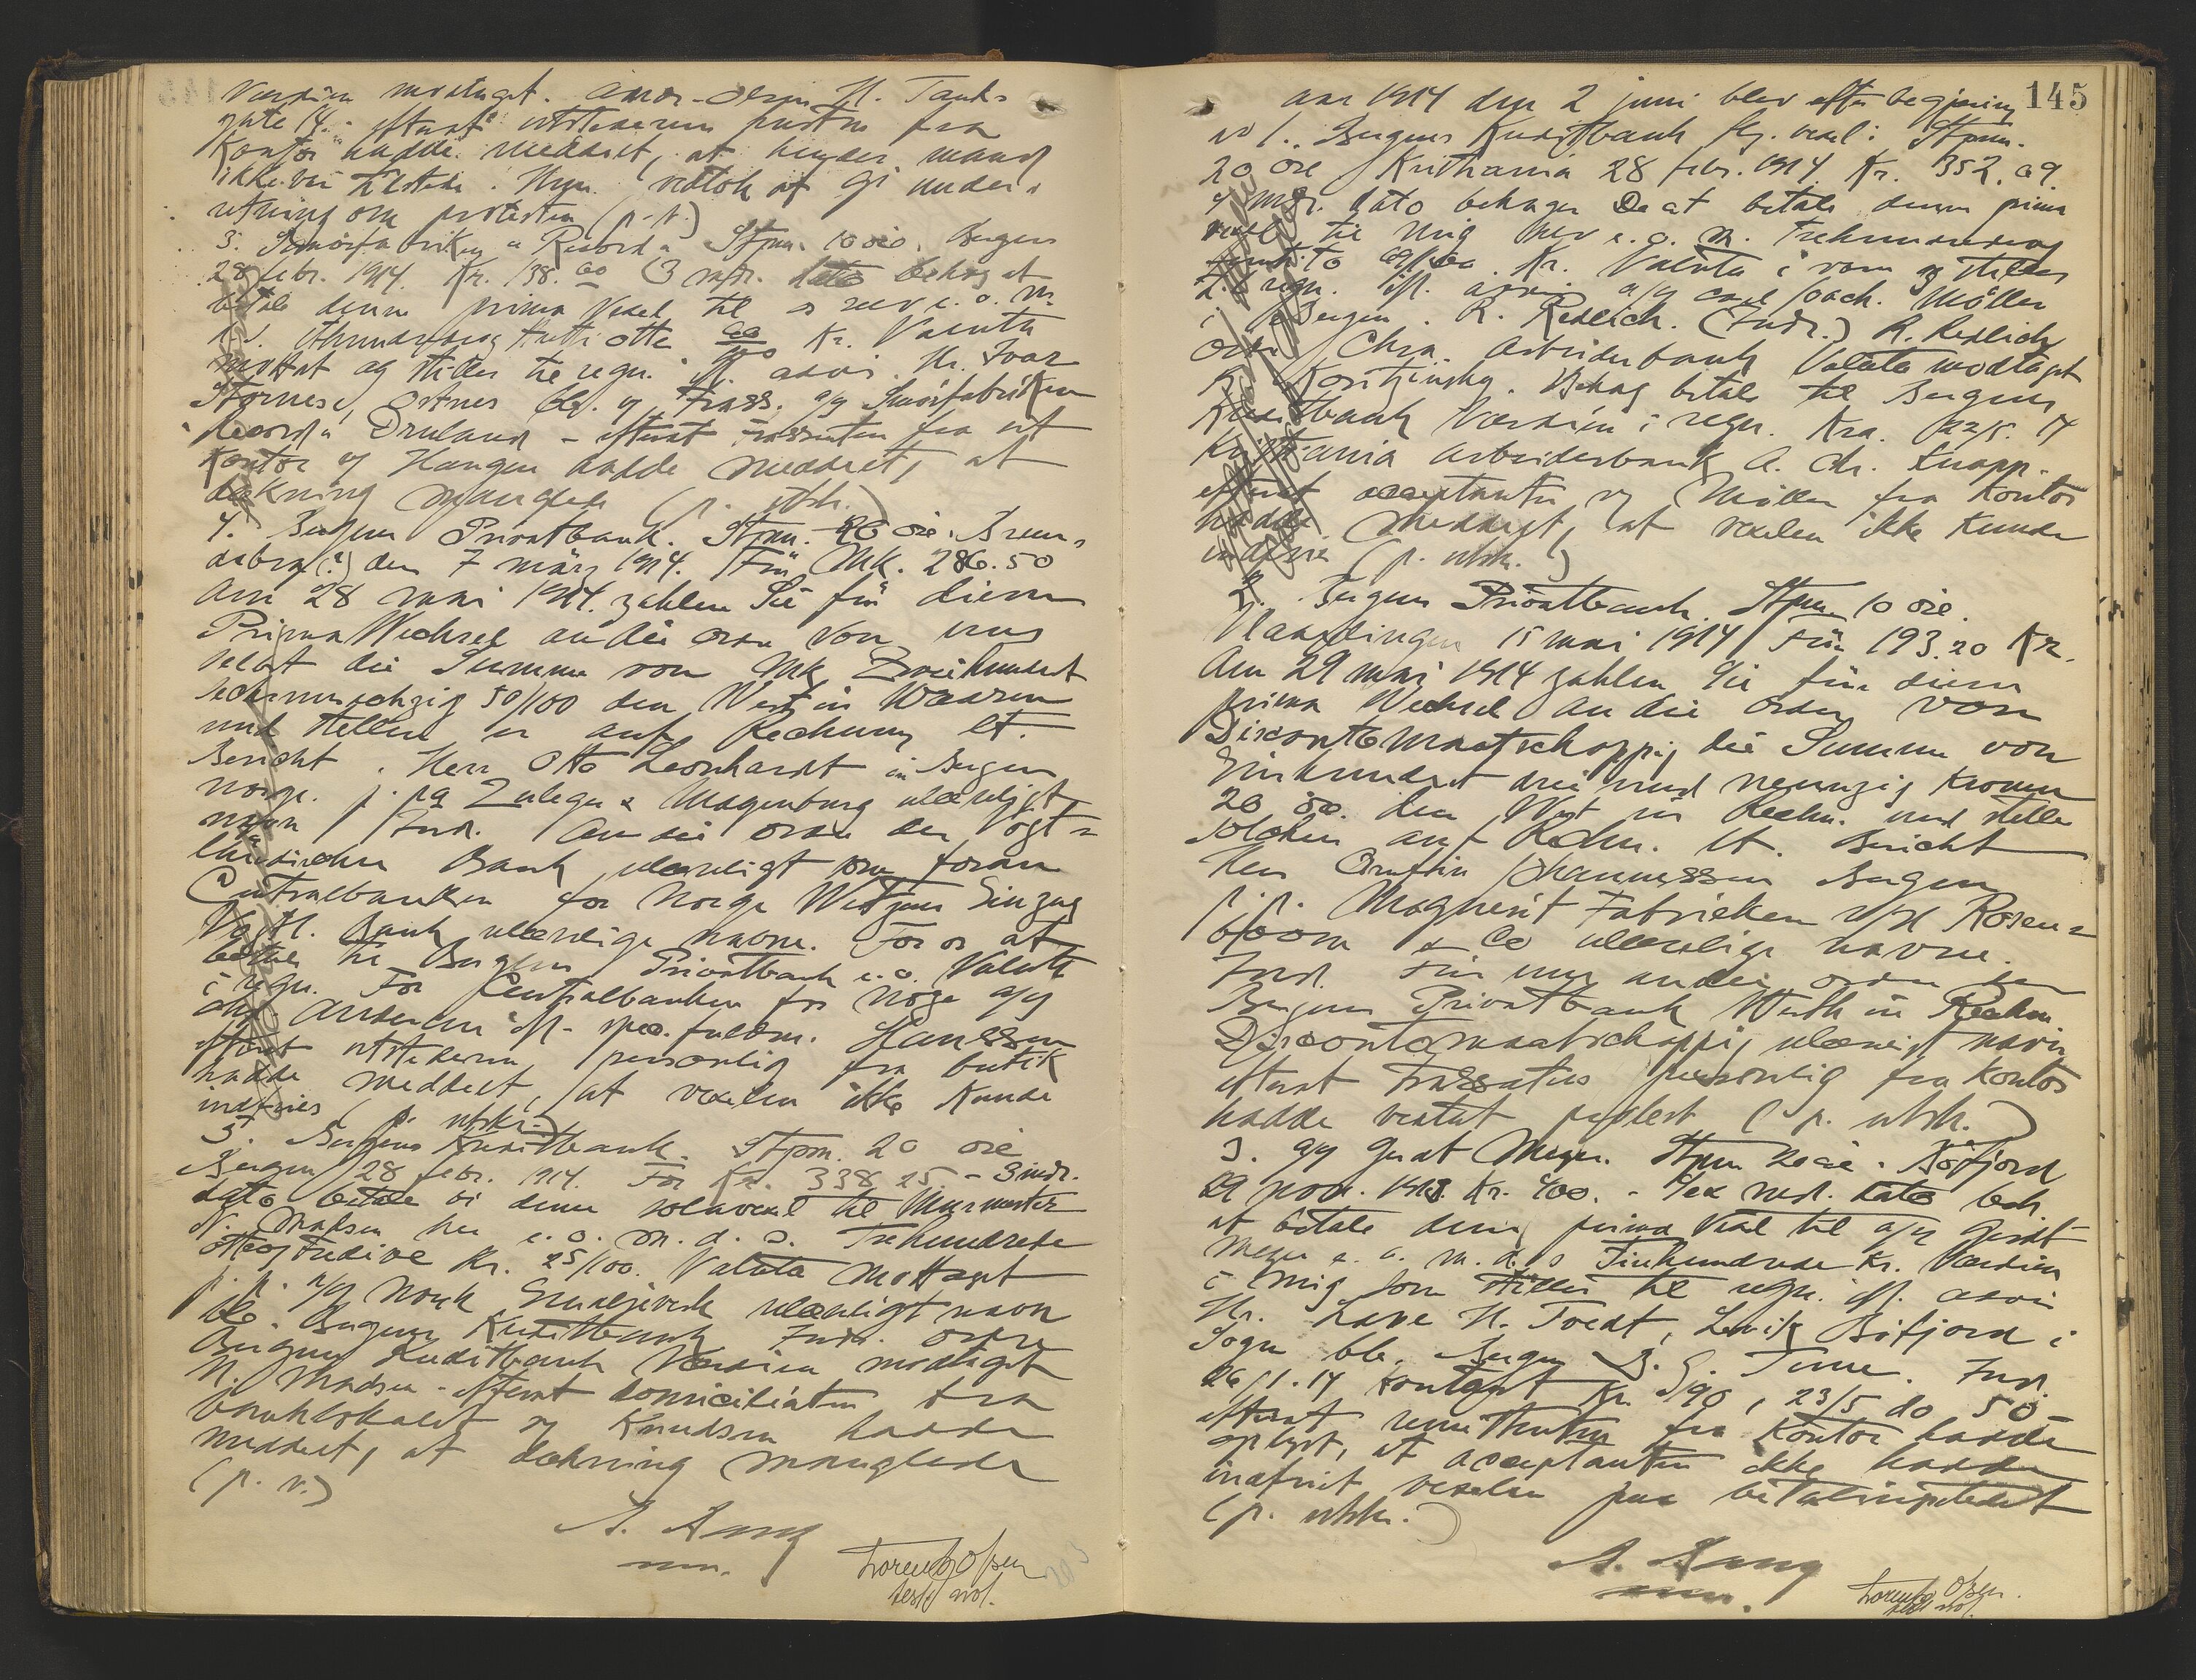 Værdien modtaget. Olsen H. Tanks
gate 14. efterat utstederens hustru fra
Kontor hadde meddelt, at hendes mand
ikke var tilstede. Hun vedtok at gi under-
retning om protesten (p. v.)
3. Smörfabriken "Record" Stpm. 10 øre. Bergen
28 febr. 1914. Kr. 138.00 (3 mdr. dato behag at
betale denne prima Vexel til os selv e. o. m.
d. s. Ethundredeogtretti otte 00/100 Kr. Valuta
mottat og stilles til regn. ifl. advis. Hr. Ivar
Stornese, Ostnes bl. og Trass. a/s Smörfabriken
"Record" efterat trassenten fra sit
Kontor v/ Haugen hadde meddelt, at
dækning manglede (p. utsk.)
4. Bergens Privatbank. Stpm. 20 øre.
(?) den 7 März 1914. Für Mk. 286.50
Am 28 mai 1914. zahlen Sie für diesen
Prima Wechsel an die Order von uns
selbst die Summe von Mk Zweihundert
sechsundachzig 50/100 den Wert in Waaren
und stellen er auf Rechnung lt.
Bericht. Herr Otto Leonhardt in Bergen
Norge. p. pa Zuleger & Magenburg ulæseligt
navn Ind. An die Order der Vogt-
ländischen Bank ulæseligt som foran
Centralbanken for Norge Wert zum Einzug
Vogtl. Bank ulæselige navne. For os at
betale til Bergens Privatbank e. o. Valuta
i regn. For Centralbanken for Norge a/s
Chr. Andersen ifl. spec. fuldm. Hanssen
efterat utstederen personlig fra butik
hadde meddelt, at vexelen ikke kunde
indfries (p. utskr.)
5. Bergens Kreditbank. Stpm. 20 øre
Bergen 28 febr. 1914. For Kr. 338 25. - 3 mdr.
dato betale vi denne solavexel til Murmester
N. Madsen her e. o. m. d. s. Trehundrede
otteogtredive Kr. 25/100. Valuta mottaget
p. p. a/s Norsk ulæseligt navn
bl. Bergens Kreditbank Ind. Ordre
Bergens Kreditbank Værdien modtaget
N. Madsen - efterat domiciliaten fra
banklokalet v/ Knudsen hadde
meddelt, at dækning manglede
(p. v.)
Lorentz Olsen
test. not.
145
Aar 1914 den 2 juni blev efter begjæring
av 1. Bergens Kreditbank flg. vexel: Stpm.
20 øre Kristiania 28 febr. 1914. Kr. 352.09.
3 mdr. dato behager De at betale denne prima
vexel til mig selv e. o. m. Trehundredeog
femtito 09/100 Kr. Valuta i varer og stilles
i regn. ifl. advis a/s Carl Joach. Möller
i Bergen. R. Redlich. (Indr.) R. Redlich
Ordre Chra. Arbeiderbank Valuta modtaget
Behag betale til Bergens
Kreditbank Værdien i regn. Kra. 22/5. 14
Kristiania Arbeiderbank A. Chr. Knapp.
efterat acceptanten v/ Möller fra Kontor
hadde meddelt, at vexelen ikke kunde
indfries (p. utskr.)
2. Bergens Privatbank. Stpm. 10 øre.
Vlaardingen 15 mai 1914 Für 193.20 Kr.
Am 29 mai 1914 zahlen Sie für diesen
prima Wechsel an die Order von
Discontomaatschappij die Summe von
Einhundert drei und neunzig Kronen
20 öre. den Wert in Rechn. und stellen
solchen auf Rechn. lt. Bericht
Herr Arnfin Johannessen Bergen
p. p. Magnesit Fabrieken v/h Rosen-
boom & Co ulæselige navne.
Ind. Für uns an die Order der
Bergens Privatbank Werth in Rechn.
Discontomaatschappij ulæseligt navn
efterat Trassatus personlig fra Kontor
hadde vedtat protest (p. utsk.)
3. a/s Gerdt Meyer. Stpm 20 øre. Böfjord
29 nov. 1913. Kr. 400. - Sex md. dato beh.
at betale denne prima Vexel til a/s Gerdt
Meyer e. o. m. d. s Firehundrede Kr. Værdien
i mig som stilles til regn. ifl. advis
Hr. Lars H. Tvedt, Böfjord i
Sogn bl. Bergen Ind.
26/1.14 Kontant Kr 90, 23/5 do 50
efterat remittenten fra Kontor hadde
oplyst, at acceptanten ikke hadde
indfriet vexelen paa betalingsstedet
(p. utskr.)
Lorentz Olsen.
test. not.